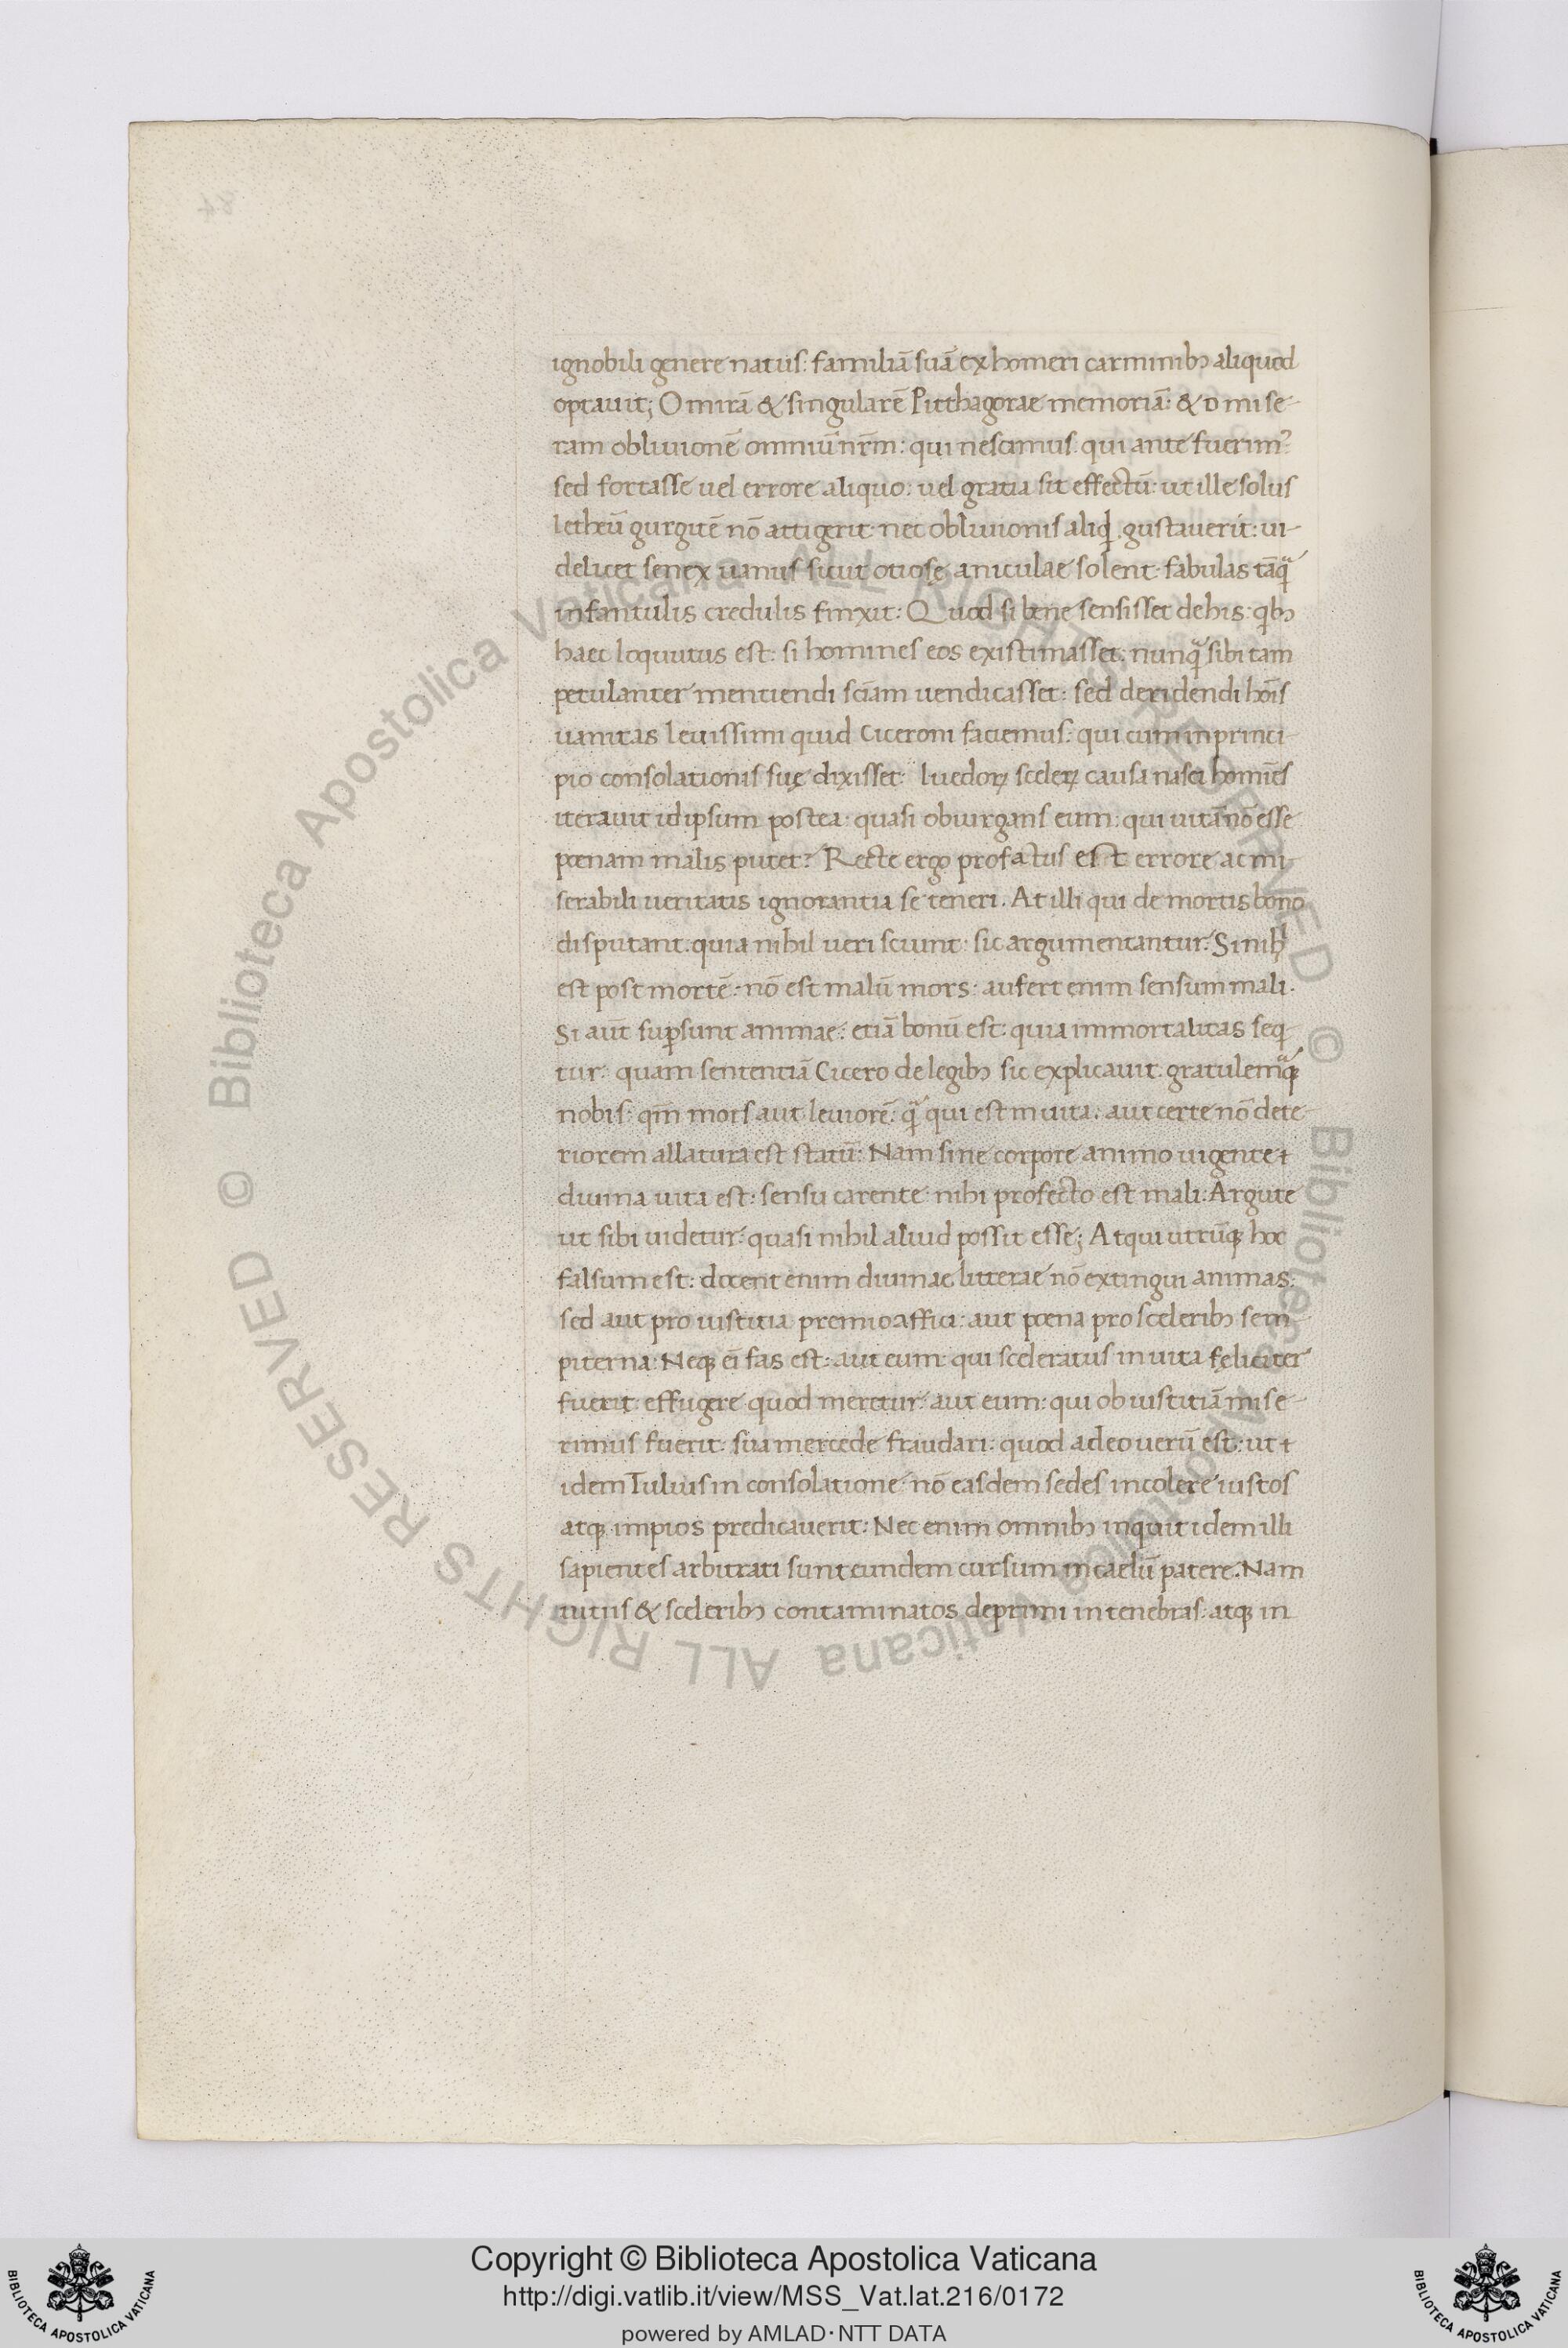 ignobili genere natus: familiā suā ex homeri carminibꝫ aliquod
optauit; O mirā & singularē Pitthagorae memoriā: & o mise-
ram obliuionē omniū nr̄m: qui nescimus qui ante fuerimꝰ
sed fortasse uel errore aliquo: uel gratia sit effectū: ut ille solus
letheū gurgitē nō attigerit nec obliuionis aliqd̸ gustauerit: ui-
delicet senex uanus sicut otiosę aniculae solent fabulas tāꝗ̃
infantulis credulis finxit: Quod si bene sensisset de his qibꝫ
haec loquutus est: si homines eos existimasset. nunꝗ̃ sibi tam
petulanter mentiendi sc̄iam uendicasset: sed deridendi hoīs
uanitas leuissimi quid Ciceroni faciemus: qui cum in princi-
pio consolationis suę dixisset: luedoꝝ sceleꝝ causa nasci homīes
iterauit id ipsum postea quasi obiurgans eum: qui uitā nō esse
poenam malis putet? Recte ergo profatus est errore ac mi-
serabili ueritatis ignorantia se teneri. At illi qui de mortis bono
disputant. quia nihil ueri sciunt: sic argumentantur. Si nihl
est post mortē: nō est malū mors: aufert enim sensum mali.
Si aūt suꝑsunt animae: etiā bonū est: quia immortalitas seq-
tur: quam sententiā Cicero de legibꝫ sic explicauit. gratulemurqꝫ
nobis: qm̄ mors aut leuiorē: ꝗ̃ qui est in uita. aut certe nō dete-
riorem allatura est statū: Nam sine corpore animo uigente ⁊
diuina uita est: sensu carente nihi profecto est mali: Argute
ut sibi uidetur: quasi nihil aliud possit esse; Atqui utrūqꝫ hoc
falsum est: docent enim diuinae litterae nō extingui animas:
sed aut pro iustitia premio affici: aut poena pro sceleribꝫ sem-
piterna: Neqꝫ ēi fas est: aut eum qui sceleratus in uita feliciter
fuerit effugere quod meretur: aut eum: qui ob iustitiā mise-
rimus fuerit: sua mercede fraudari: quod adeo uerū est: ut ⁊
idem Tulius in consolatione nō easdem sedes incolere iustos
atqꝫ impios predicauerit: Nec enim omnibꝫ inquit idem illi
sapientes arbitrati sunt eundem cursum in caelū patere. Nam
uitiis & sceleribꝫ contaminatos deprimi in tenebras: atqꝫ in
© Biblioteca Apostolica Vaticana ALL RIGHTS RESERVED
© Biblioteca Apostolica Vaticana ALL RIGHTS RESERVED
Copyright © Biblioteca Apostolica Vaticana
http://digi.vatlib.it/view/MSS_Vat.lat.216/0172
powered by AMLAD·NTT DATA
BIBLIOTECA APOSTOLICA VATICANA
BIBLIOTECA APOSTOLICA VATICANA